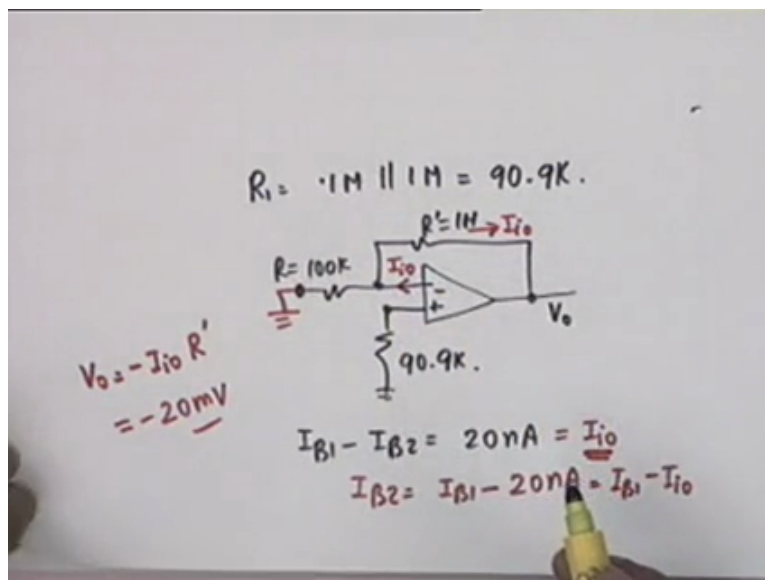 R₁ = .1M || 1M = 90.9K.
R' = 1M → Iio
R = 100K
Iio
-
+
Vo
90.9K.
Vo = -Iio R'
= -20mV
IB1 - IB2 = 20nA = Iio
IB2 = IB1 - 20nA = IB1 - Iio